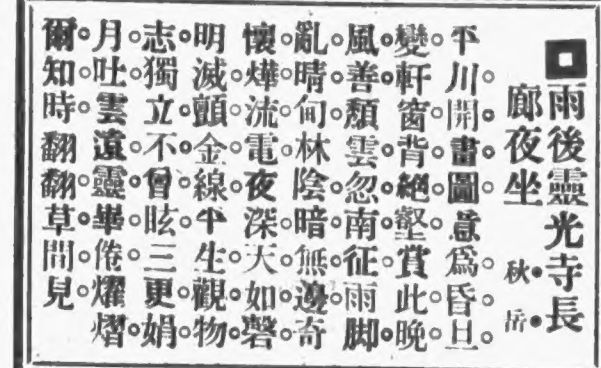 ■雨後靈光寺長
廊夜坐 秋岳
平川開畫圖意爲昏旦
變軒窗背絕壑賞此晚
風善頹雲忽南征雨脚
亂晴甸林陰暗無邊奇
懷燁流電夜深天如磬
明滅顫金線平生觀物
志獨立不曾眩三更娟
月吐雲遠靈畢倦燿熠
爾知時翻翻草間見